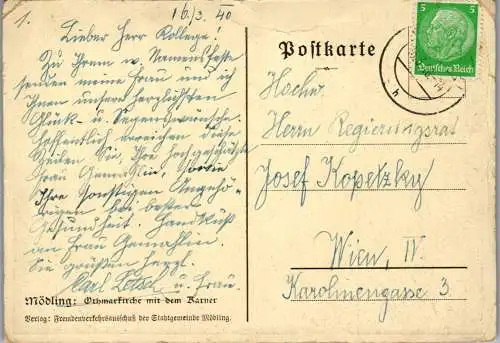 1.
16/3. 40
Lieber Herr Kollege!
Zu Ihrem w. Namensfeste
senden meine Frau und ich
Ihnen unsere herzlichsten
Glück- u. Segenswünsche.
Hoffentlich erreichen diese
Zeilen Sie, Ihre hochgeschätzte
Frau Gemahlin, sowie
Ihre sonstigen Angehö-
rigen bei bester
Gesundheit. Handkuß
an Frau Gemahlin.
Sie grüßen herzl.
Carl u. Frau.
Mödling: Othmarkirche mit dem Karner
Verlag: Fremdenverkehrsausschuß der Stadtgemeinde Mödling.
Postkarte
5 5
Deutsches Reich
h
Hochw.
Herrn Regierungsrat
Josef Kopetzky
Wien, IV.
Karolinengasse 3.